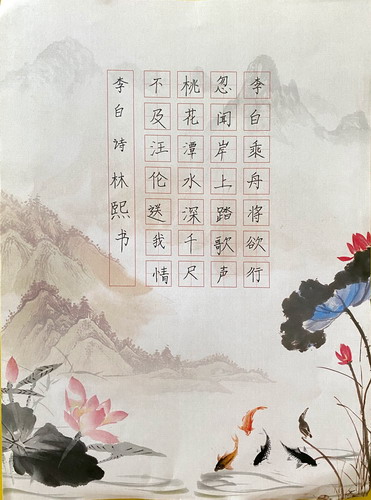 李白乘舟将欲行
忽闻岸上踏歌声
桃花潭水深千尺
不及汪伦送我情
李白诗 林熙书